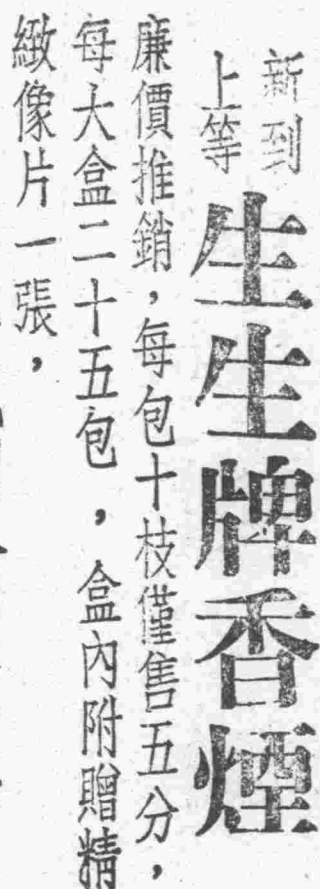 新到
上等
生生牌香煙
廉價推銷，每包十枝僅售五分，
每大盒二十五包，盒內附贈精
緻像片一張，